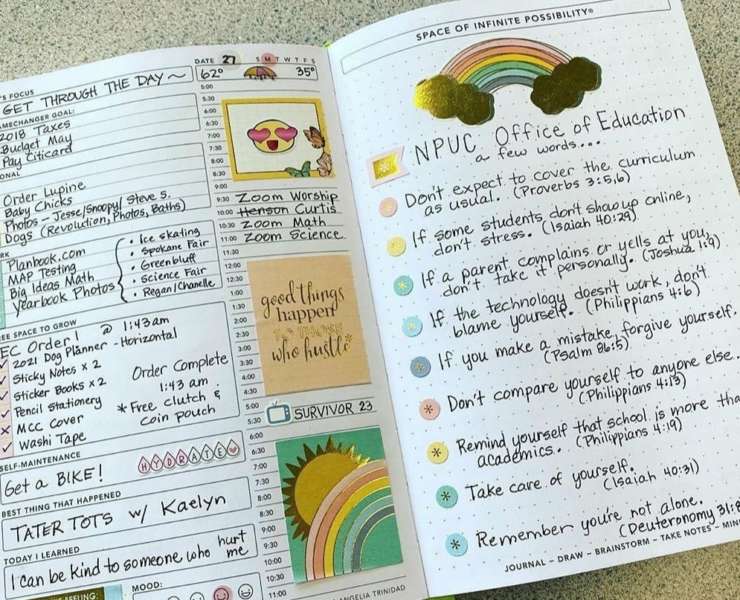 DATE 27 S M T W T F S
62° 35°
'S FOCUS
GET THROUGH THE DAY ~
AMECHANGER GOAL:
2018 Taxes
Budget May
Pay Citicard
ONAL
Order Lupine
Baby Chicks
Photos - Jesse/Snoopy/Steve S.
Dogs (Revolution, Photos, Baths)
RK
Planbook.com
MAP Testing
Big Ideas Math
Yearbook Photos
• Ice skating
• Spokane Fair
• Greenbluff
• Science Fair
• Regan/Chanelle
EE SPACE TO GROW
EC Order! @ 1:43am
✓ 2021 Dog Planner - Horizontal
✓ Sticky Notes x 2
✓ Sticker Books x 2
✓ Pencil Stationery
X MCC Cover
✓ Washi Tape
Order Complete
1:43 am
* Free Clutch &
coin pouch
SELF-MAINTENANCE
HYDRATE
Get a BIKE!
BEST THING THAT HAPPENED
TATER TOTS w/ Kaelyn
TODAY I LEARNED
I can be kind to someone who hurt me
FEELING:
MOOD:
5:00
5:30
6:00
6:30
7:00
7:30
8:00
8:30
9:00
9:30 Zoom Worship
10:00 Henson Curtis
10:30 Zoom Math
11:00 Zoom Science
11:30
12:00
12:30
1:00
1:30
2:00
2:30
3:00
3:30
4:00
4:30
good things
happen
to those
who hustle
5:00
5:30 SURVIVOR 23
6:00
6:30
7:00
7:30
8:00
8:30
9:00
9:30
10:00
10:30
11:00
ANGELIA TRINIDAD
SPACE OF INFINITE POSSIBILITY®
NPUC Office of Education
a few words...
Don't expect to cover the curriculum
as usual. (Proverbs 3:5,6)
If some students don't show up online,
don't stress. (Isaiah 40:29)
If a parent complains or yells at you,
don't take it personally. (Joshua 1:9)
If the technology doesn't work, don't
blame yourself. (Philippians 4:6)
If you make a mistake, forgive yourself.
(Psalm 86:5)
Don't compare yourself to anyone else..
(Philippians 4:13)
Remind yourself that school is more tha
academics. (Philippians 4:19)
Take care of yourself.
(Isaiah 40:31)
Remember you're not alone.
(Deuteronomy 31:8
JOURNAL – DRAW – BRAINSTORM – TAKE NOTES – MIN